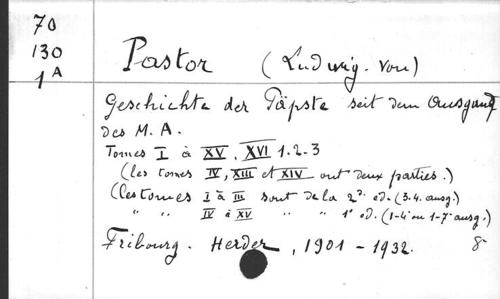 70
130
1A
Pastor (Ludwig. von)
Geschichte der Päpste seit dem Ausgang
des M. A.
Tomes I à XV, XVI 1.2.3
(les tomes IV, XIII et XIV ont deux parties.)
(les tomes I à III sont de la 2e. ed. (3.4. ausg.)
" " IV à XV " " 1e ed. (1-4 ou 1-7 ausg.)
Fribourg. Herder, 1901 - 1932. 8°